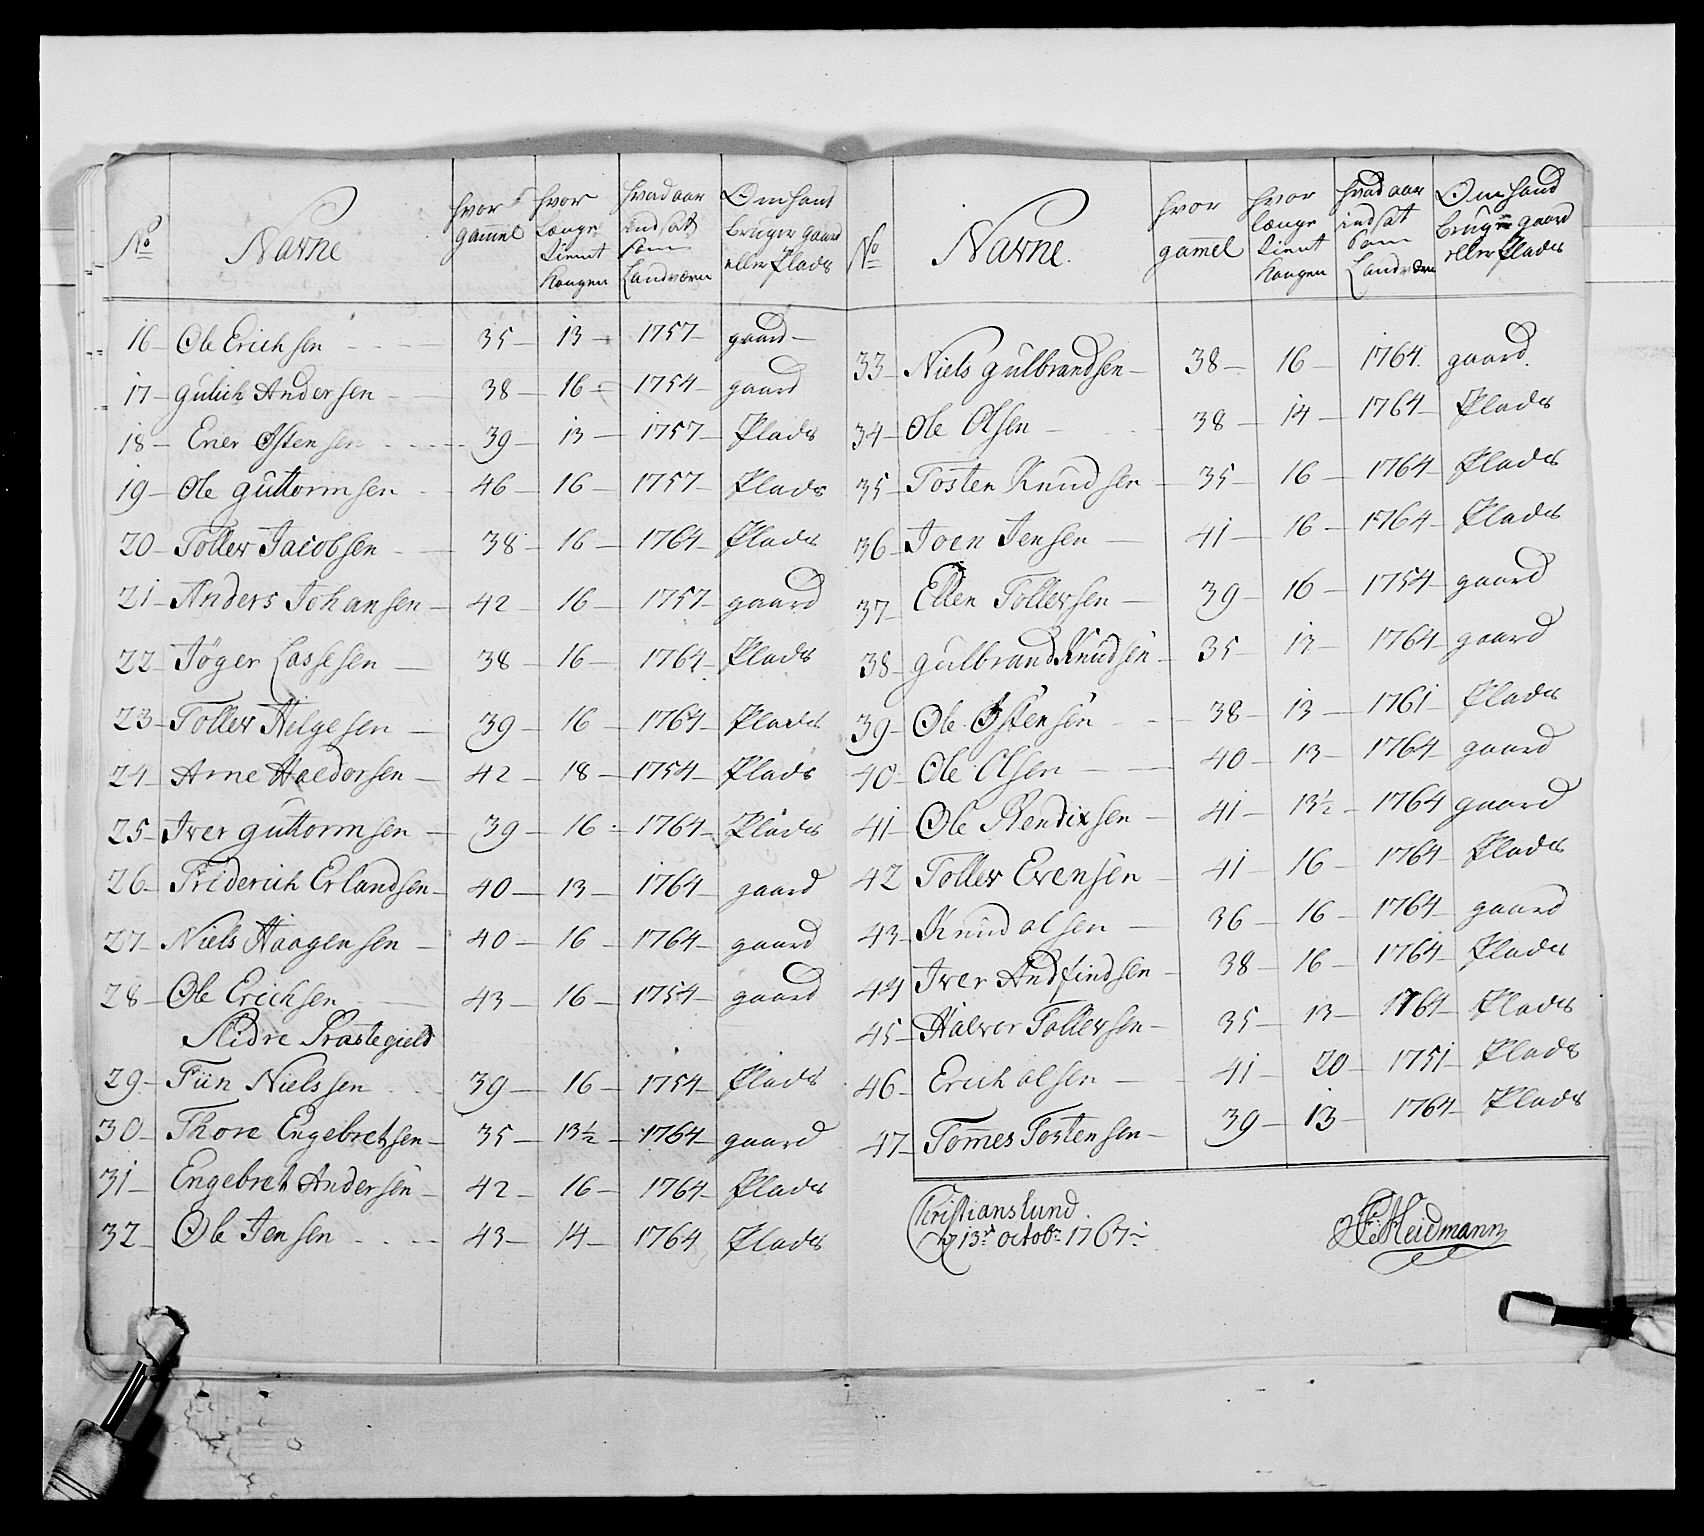 No
Navne
hvor gam̄el
hvor længe tient Kongen
hvad aar indsat som Landværn
Om hand bruger gaard eller Plads
16 – Ole Erichsen – 35 – 13 – 1757 – gaard –
17 – Gulich Andersen – 38 – 16 – 1754 – gaard
18 – Ener Østensen – 39 – 13 – 1757 – Plads
19 – Ole Guttormsen – 46 – 16 – 1757 – Plads
20 – Tollev Jacobsen – 38 – 16 – 1764 – Plads
21 – Anders Johansen – 42 16 – 1757 – gaard
22 – Jøger Lassesen – 38 – 16 – 1764 – Plads
23 – Tollev Helgesen – 39 – 16 – 1764 – Plads
24 – Arne Haldorsen – 42 – 18 – 1754 – Plads
25 – Iver Guttormsen – 39 – 16 – 1764 – Plads
26 – Friderich Erlandsen – 40 – 13 – 1764 – gaard
27 – Niels Haagensen – 40 – 16 – 1764 – gaard
28 – Ole Erichsen – 43 – 16 – 1754 – gaard
Slidre Præstegield
29 – Fün Nielssen – 39 – 16 – 1754 – Plads
30 – Thore Engebretsen – 35 – 13½ – 1764 – gaard
31 – Engebret Andersen – 42 – 16 – 1764 – Plads
32 – Ole Jensen – 43 – 14 – 1764 Plads
No
Navne.
hvor gam̄el
hvor længe tient Kongen
hvad aar indsat Som Landværn
Om hand bruger gaard eller Plads
33 – Niels Gulbrandsen – 38 – 16 – 1764. gaard.
34 – Ole Olsen – 38 – 14 – 1764 – Plads
35 – Tosten Knudsen – 35 – 16 – 1764 – Plads
36 – Joen Jensen – 41 – 16 – 1764 – Plads
37 – Ellen Tollevsen – 39 – 16 – 1754 – gaard
38 – Gulbrand Knudsen – 35 – 13 – 1764 – gaard
39 – Ole Østensen – 38 – 13 – 1761 – Plads
40 – Ole Olsen – 40 – 13 – 1764 – gaard
41 – Ole Bendixsen – 41 – 13½ – 1764 gaard
42 Tollev Evensen – 41 – 16 – 1764 – Plads
43 – Knud olsen – 36 – 16 – 1764 – gaard
44 Iver Andfindsen – 38 – 16 – 1764 – Plads
45 – Halvor Tollevsen – 35 – 13 – 1764 – Plads
46 – Erich olsen – 41 – 20 – 1751 – Plads
47 – Tom̄es Tostensen – 39 – 13 – 1764 – Plads
Christianslund.
d 13de octobr 1767
Heidmann